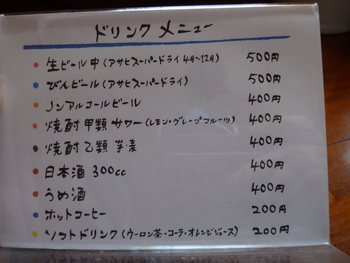 ドリンクメニュー
生ビール中(アサヒスーパードライ4月〜12月) 500円
びんビール(アサヒスーパードライ) 500円
ノンアルコールビール 400円
焼酎甲類サワー(レモン・グレープフルーツ) 400円
焼酎乙類 芋・麦 400円
日本酒 300cc 400円
うめ酒 400円
ホットコーヒー 200円
ソフトドリンク(ウーロン茶・コーラ・オレンジジュース) 200円